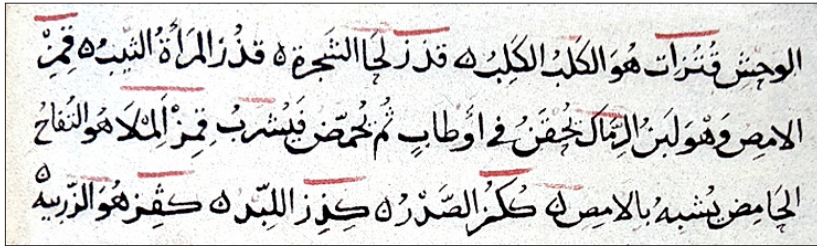 الوحش قُتُزات هُوَ الكَلبُ الكَلِبُ ه قدَز لحَا الشجرة ه قذُر المَرأة الثَيبُ ه قِمِزْ
الامِص وَهْوَ لبَن الرِمَاكَ يُحْقَنَ في اَوْطابٍ ثم يُحمّض فيُشربُ قِمِزْ اَلمْلَا هُو التُفاحُ
الحَامِض يُشبهُ بالامِص ه كُكُز الصَّدْرُ ه كِذِز اللِبَد ه كفِز هُوَ الزّرِبية ه